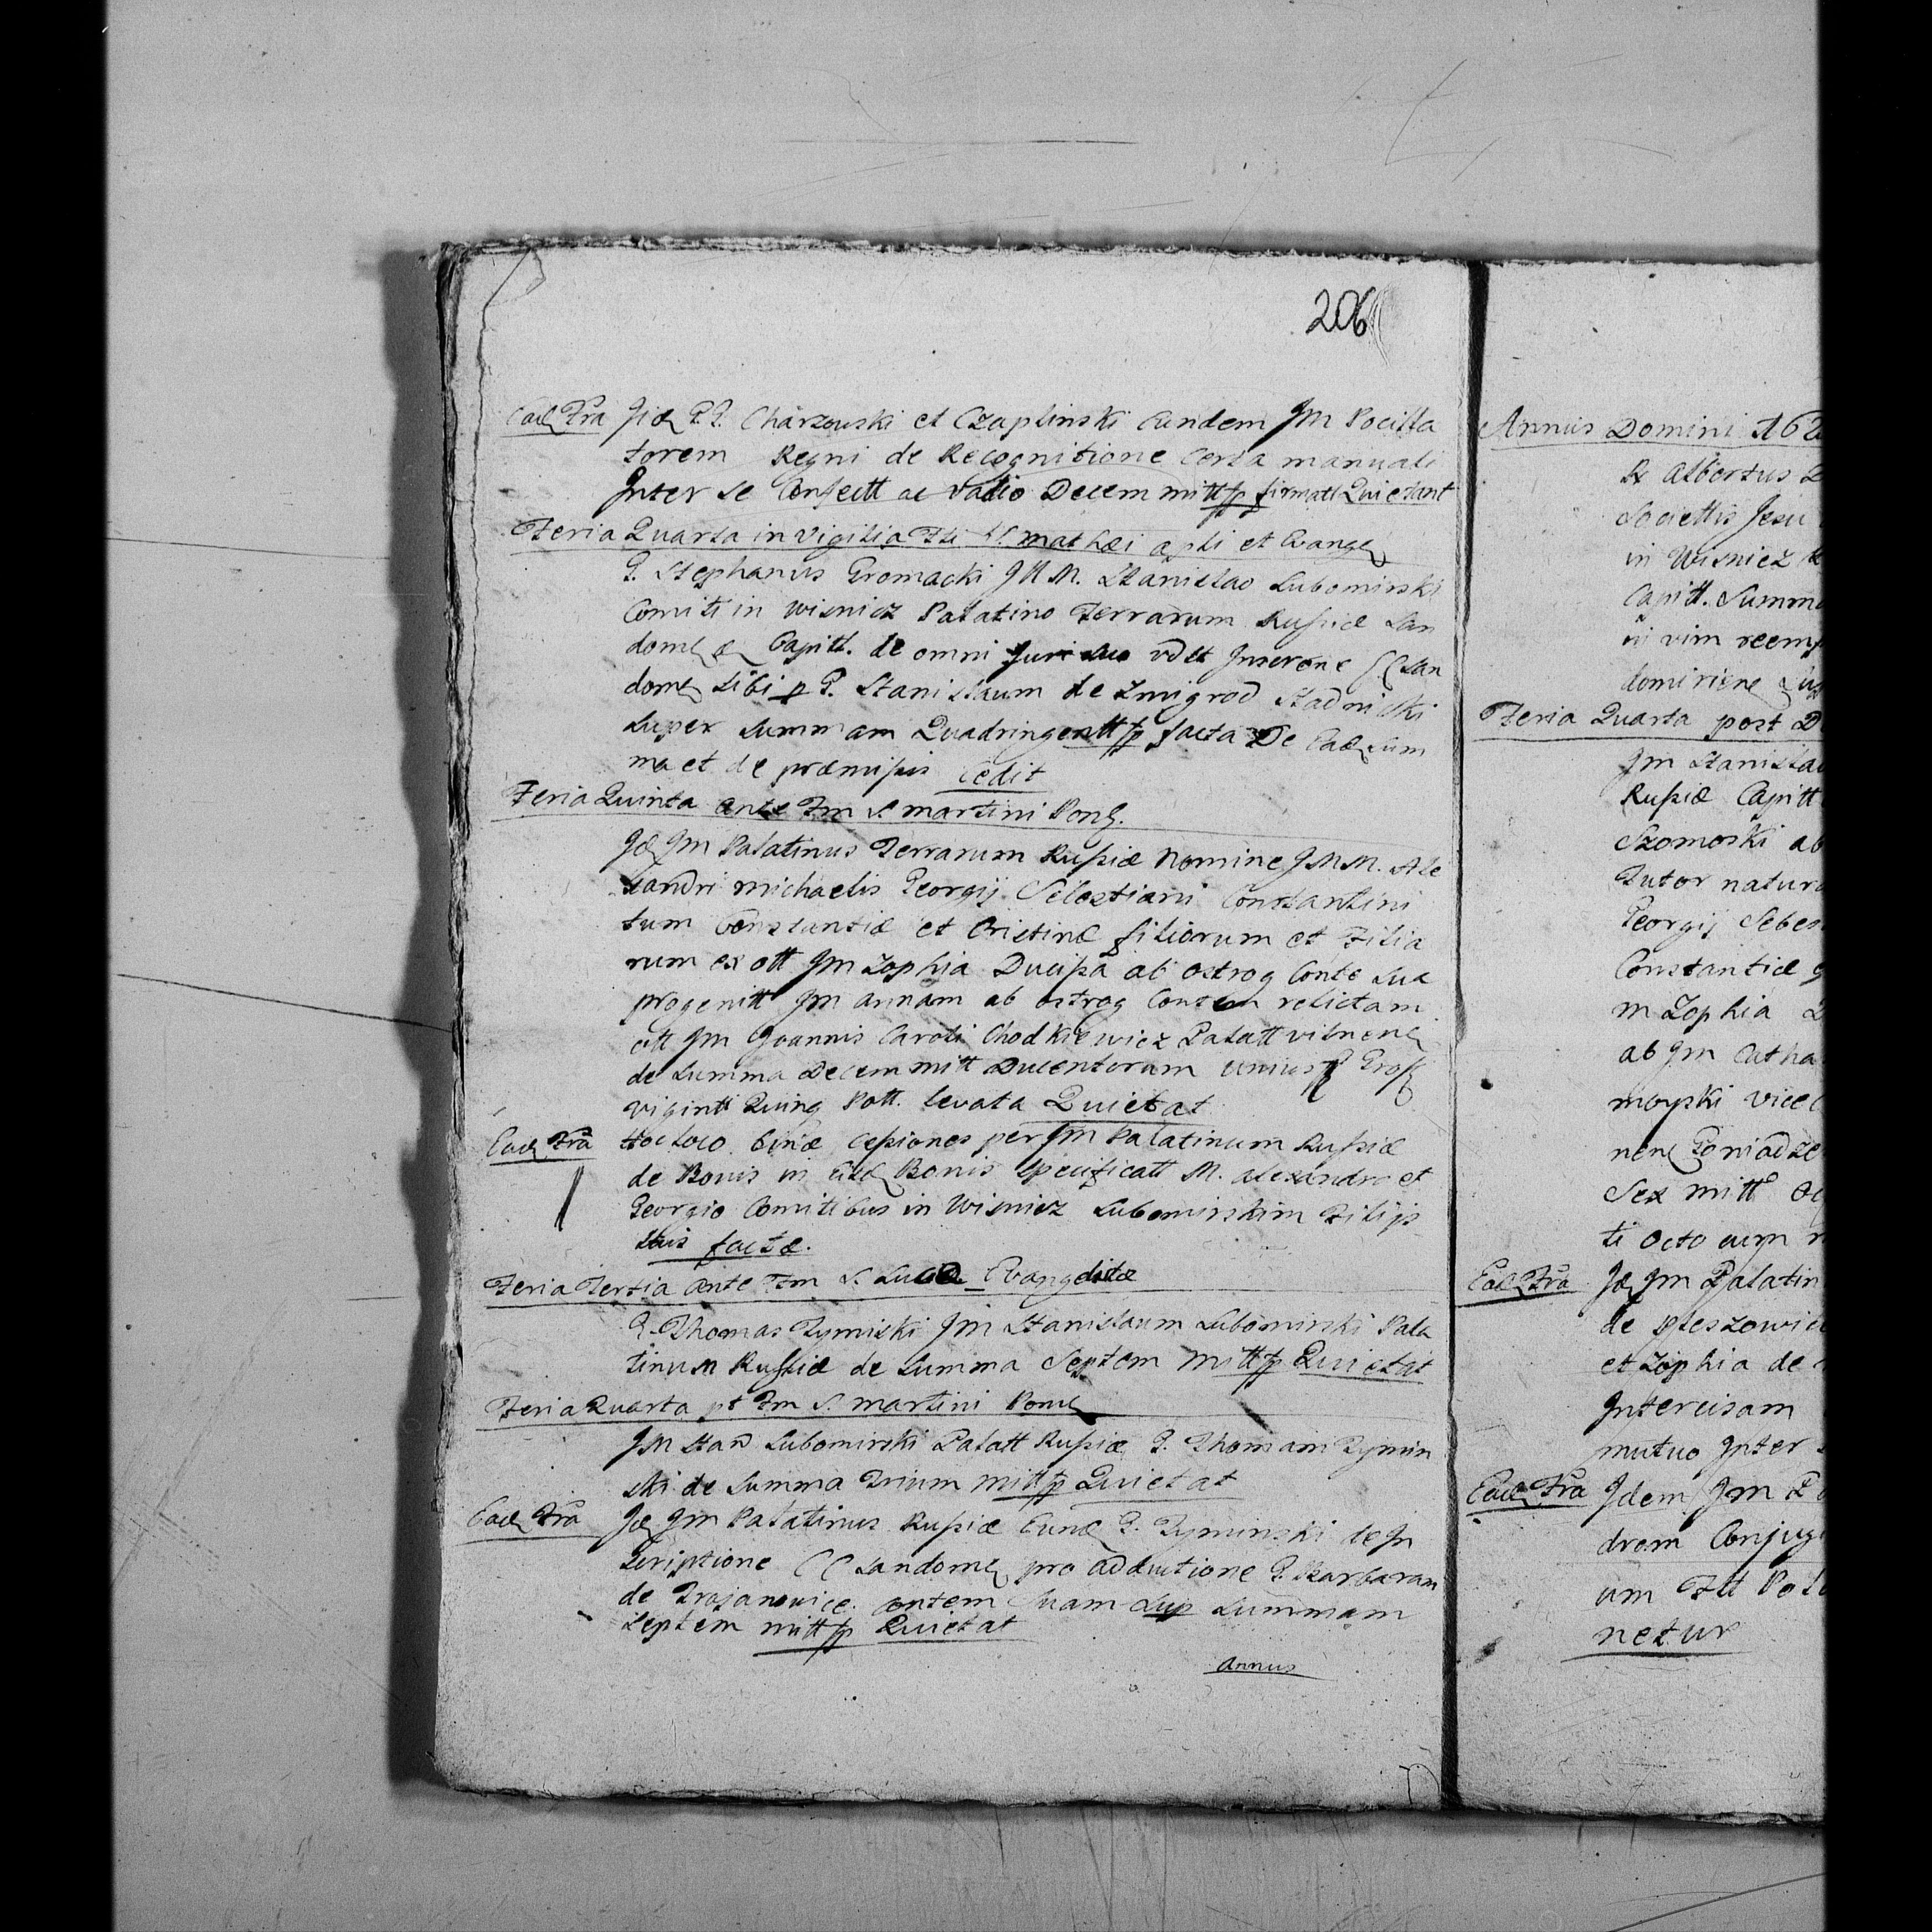 206
Ead Fra Jid P.P. Charzowski et Czaplinski Eundem Jm Pocilla
torem Regni de Recognitione Certa manuali
Inter se Confectt ac vadio Decem mitt fp firmatt Quietant
Feria Quarta in vigilia Fti S. mathæi apli et Evang
G. Stephanus Gromacki JMM. Stanislao Lubomirski
Comiti in Wisnicz Palatino Terrarum Russiæ San
dom Capitt. de omni Jure suo Inscrone CC San
dom sibi p G. Stanislaum de Zmigrod Stadnicki
super summam Quadringentt fp facta De Ead Sum
ma et de præmissis Cedit
Feria Quinta ante Fm S. martini Pont.
Jd Jm Palatinus Terrarum Russiæ Nomine JMM. Ale
xandri michaelis Georgij Constantini
tum Constantiæ et Cristinæ filiorum et Filia
rum ex ott Jm Zophia Ducissa ab ostrog Conte sua
progenitt Jm annam ab ostrog Contem relictam
ott Jm Joannis Caroli Chodkiewicz Palatt vilnen
de Summa Decem mitt Ducentorum unius f Gross
viginti Quinq Pott. levata Quietat
Ead Fra Hoc loco binæ cessiones per Jm Palatinum Russiæ
de Bonis in Bonis specificatt M. alexandro et
Georgio Comitibus in Wisnicz Lubomirskim Filijs
suis factæ.
Feria Tertia ante Fm S. Lucæ Evangelistæ
G. Thomas Zymiski Jm Stanislaum Lubomirski Pala
tinum Russiæ de Summa Septem mitt fp Quietat
Feria Quarta pt Fm S. martini Pont
JM Stan Lubomirski Palatt Russiæ G. Thomam Zymin
ski de Summa Trium mitt fp Quietat
Ead Fra Jd Jm Palatinus Russiæ Eund G. Zyminski de In
scriptione CC Sandom pro adductione G. Barbaram
de Trojanowice contem suam sup summam
septem mitt fp Quietat
annus
Annus Domini 162
albertus
Societtis Jesu
in Wisnicz
Capitt. Summa
in vim reemp
domirien
Feria Quarta post D
Jm Stanislau
Russiæ Capitt
Szomoski ab
Tutor natura
Georgij Sebes
Constantiæ
m Zophia
ab Jm Catha
moyski vice
nen Goniadze
Sex mitt
ti octo cum
Ead Fra Jd Jm Palatin
de pleszowic
et Zophia de
Intercisam
mutuo Inter
Ead Fra Jdem Jm
drem Conjug
um
netur